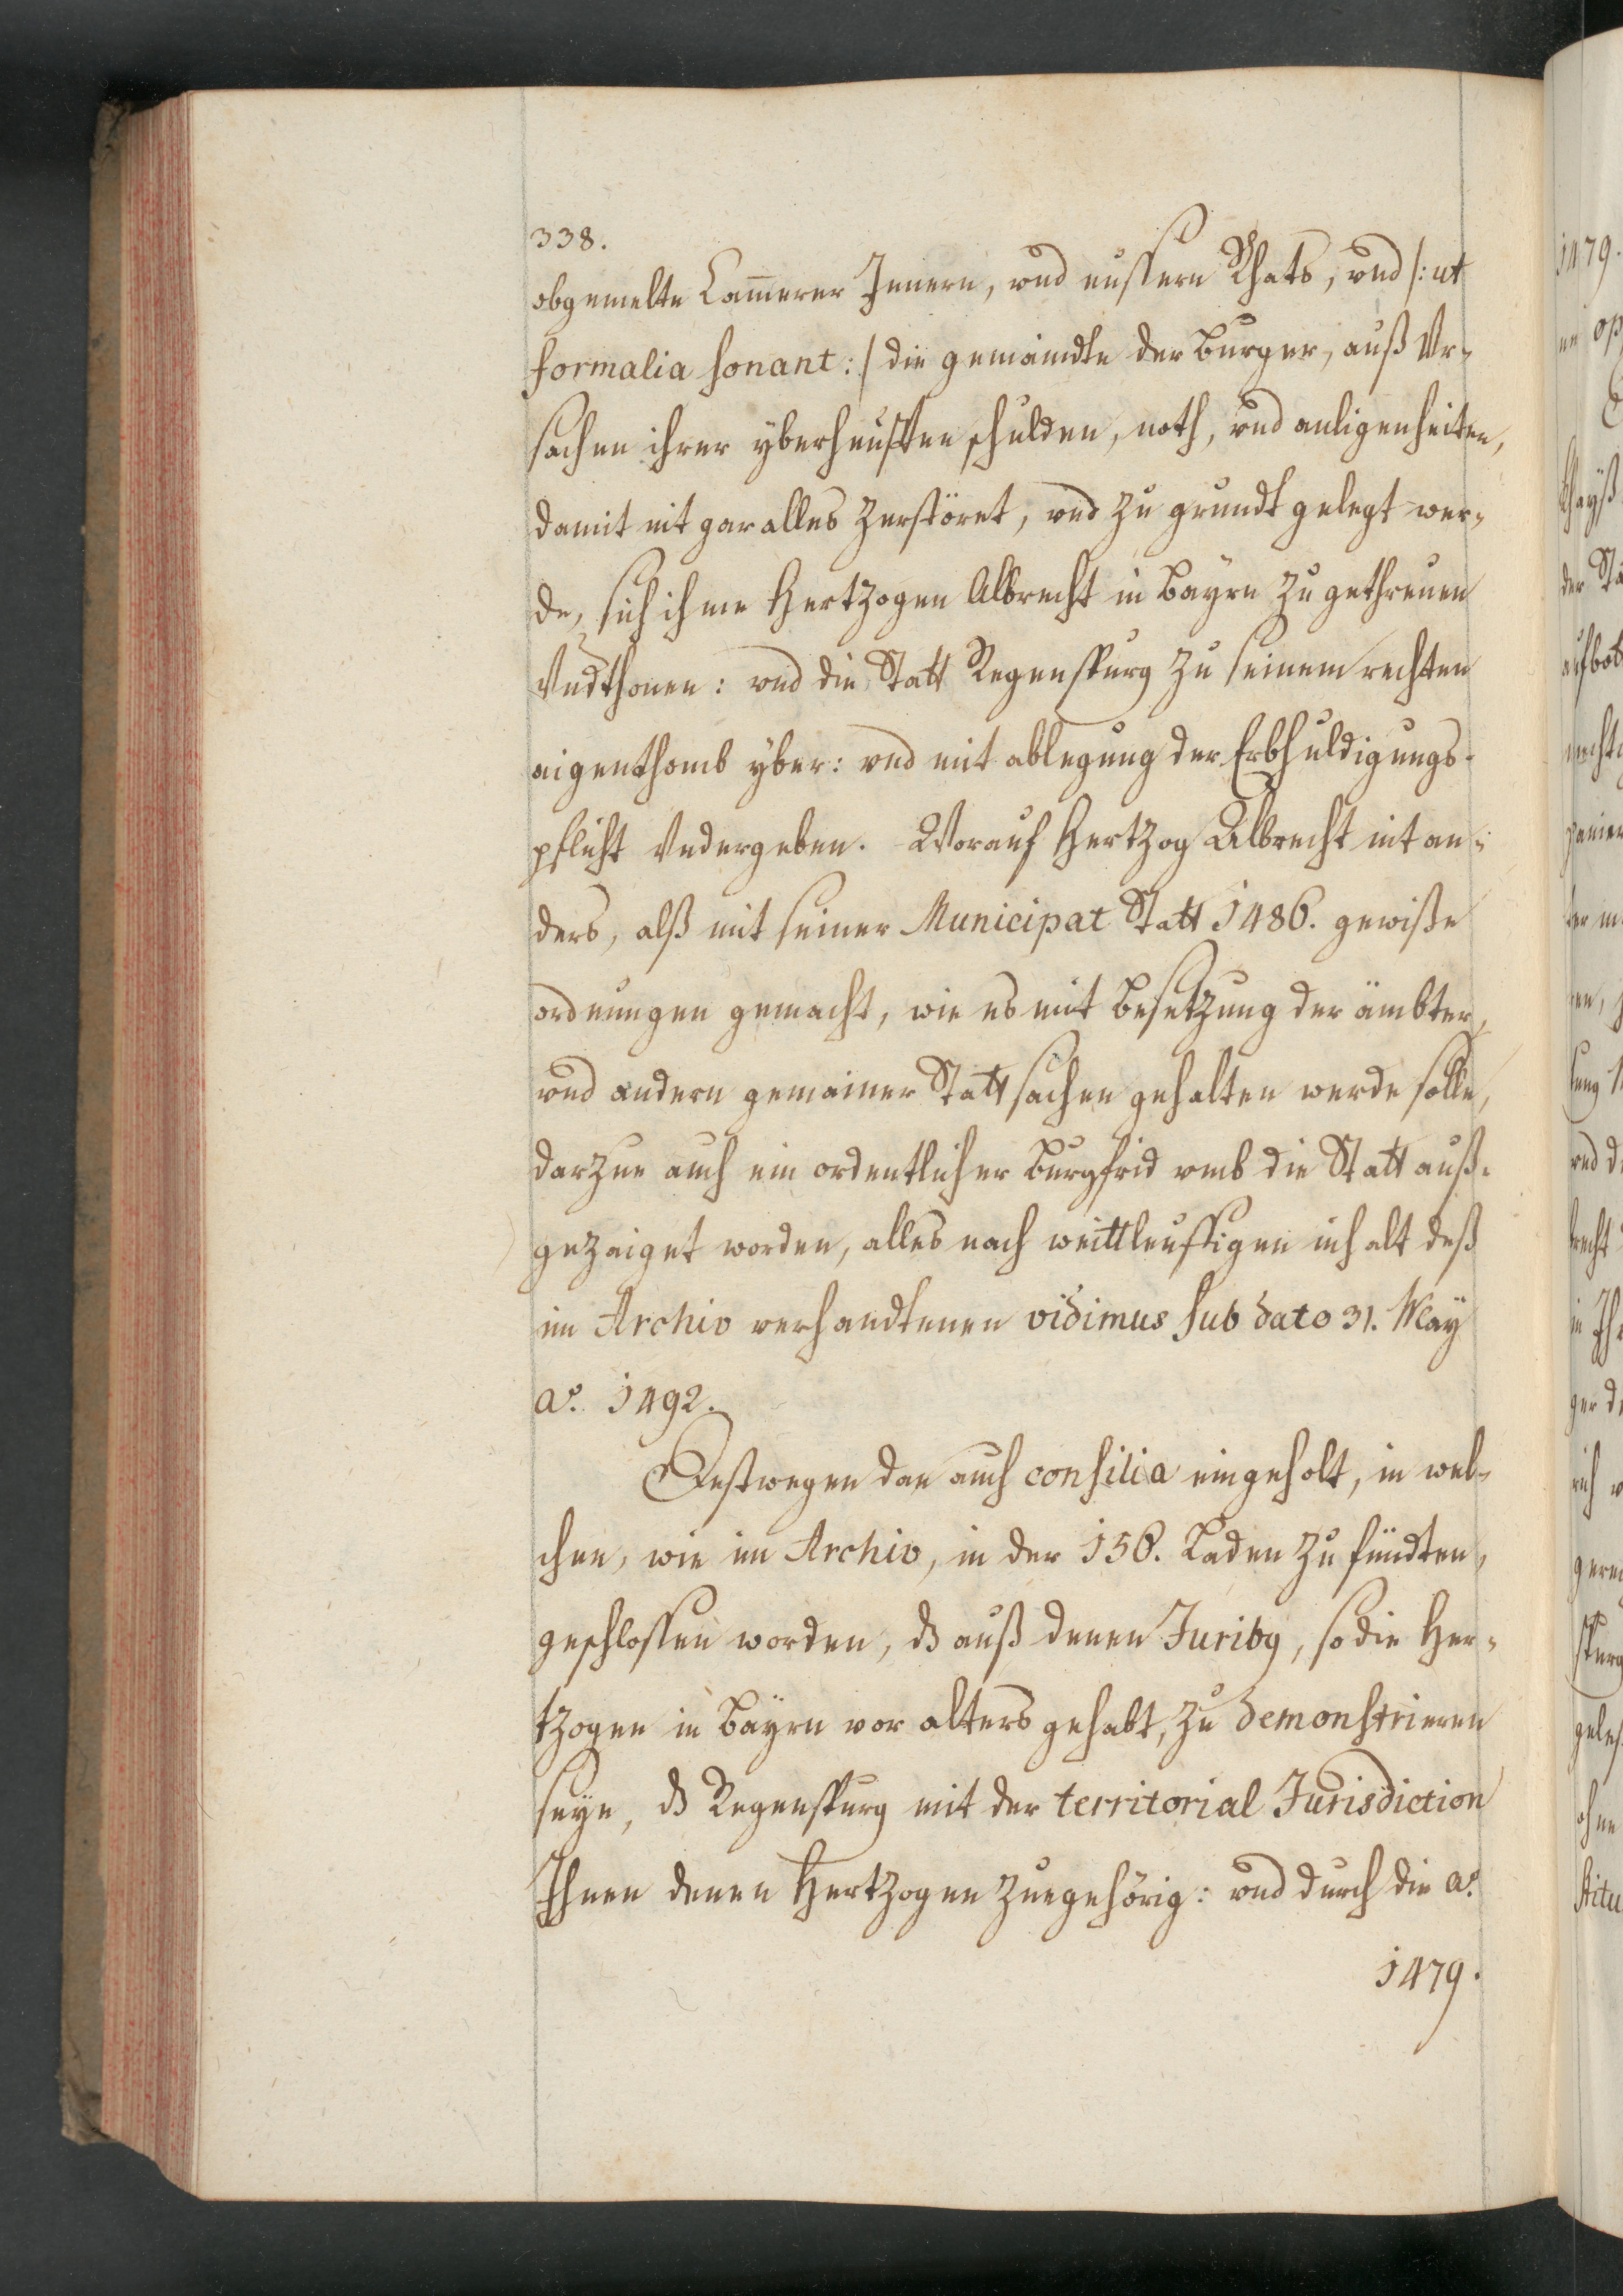 338.
obgemelte Cam̄erer Innern, vnd eussern Rhats, vnd /: ut
formalia sonant :/ die gemaindte der Burger, auß Vr-
sachen ihrer yberheufften schulden, noth, vnd anligenheiten,
damit nit gar alles zerstöret, vnd zu grundt gelegt wer-
de, sich ihme Hertzogen Albrecht in Bayrn zu gethreuen
Vndthonen: vnd die Statt Regenspurg zu seinem rechten
aigenthomb yber: vnd mit ablegung der Erbhuldigungs-
pflicht Vndergeben. Worauf Hertzog Albrecht nit an-
ders, alß mit seiner Municipat Statt 1486. gewiße
ordnungen gemacht, wie es mit besetzung der ämbter,
vnd andern gemainer Statt sachen gehalten werde solle,
darzue auch ein ordentlicher Burgfrid vmb die Statt auß-
gezaiget worden, alles nach weittleuffigen inhalt deß
im Archiv verhandtenen vidimus sub dato 31. May
aº. 1492.
Destwegen dan auch consilia eingeholt, in wel-
chen, wie im Archiv, in der 156. Laden zu fündten,
geschlossen worden, dß auß denen Juribg, so die Her-
tzogen in Bayrn vor alters gehabt, zu demonstrieren
seye, dß Regenspurg mit der territorial Jurisdiction
Ihnen denen Hertzogen zuegehörig: vnd durch die aº.
1479.
1479.